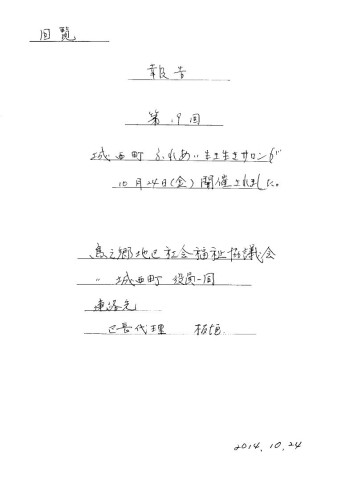 回覧
報告
第19回
城西町 ふれあい生き生きサロンが
10月24日(金)開催されました。
恵之郷地区社会福祉協議会
〃 城西町 役員一同
連絡先
区長代理 板垣
2014.10.24